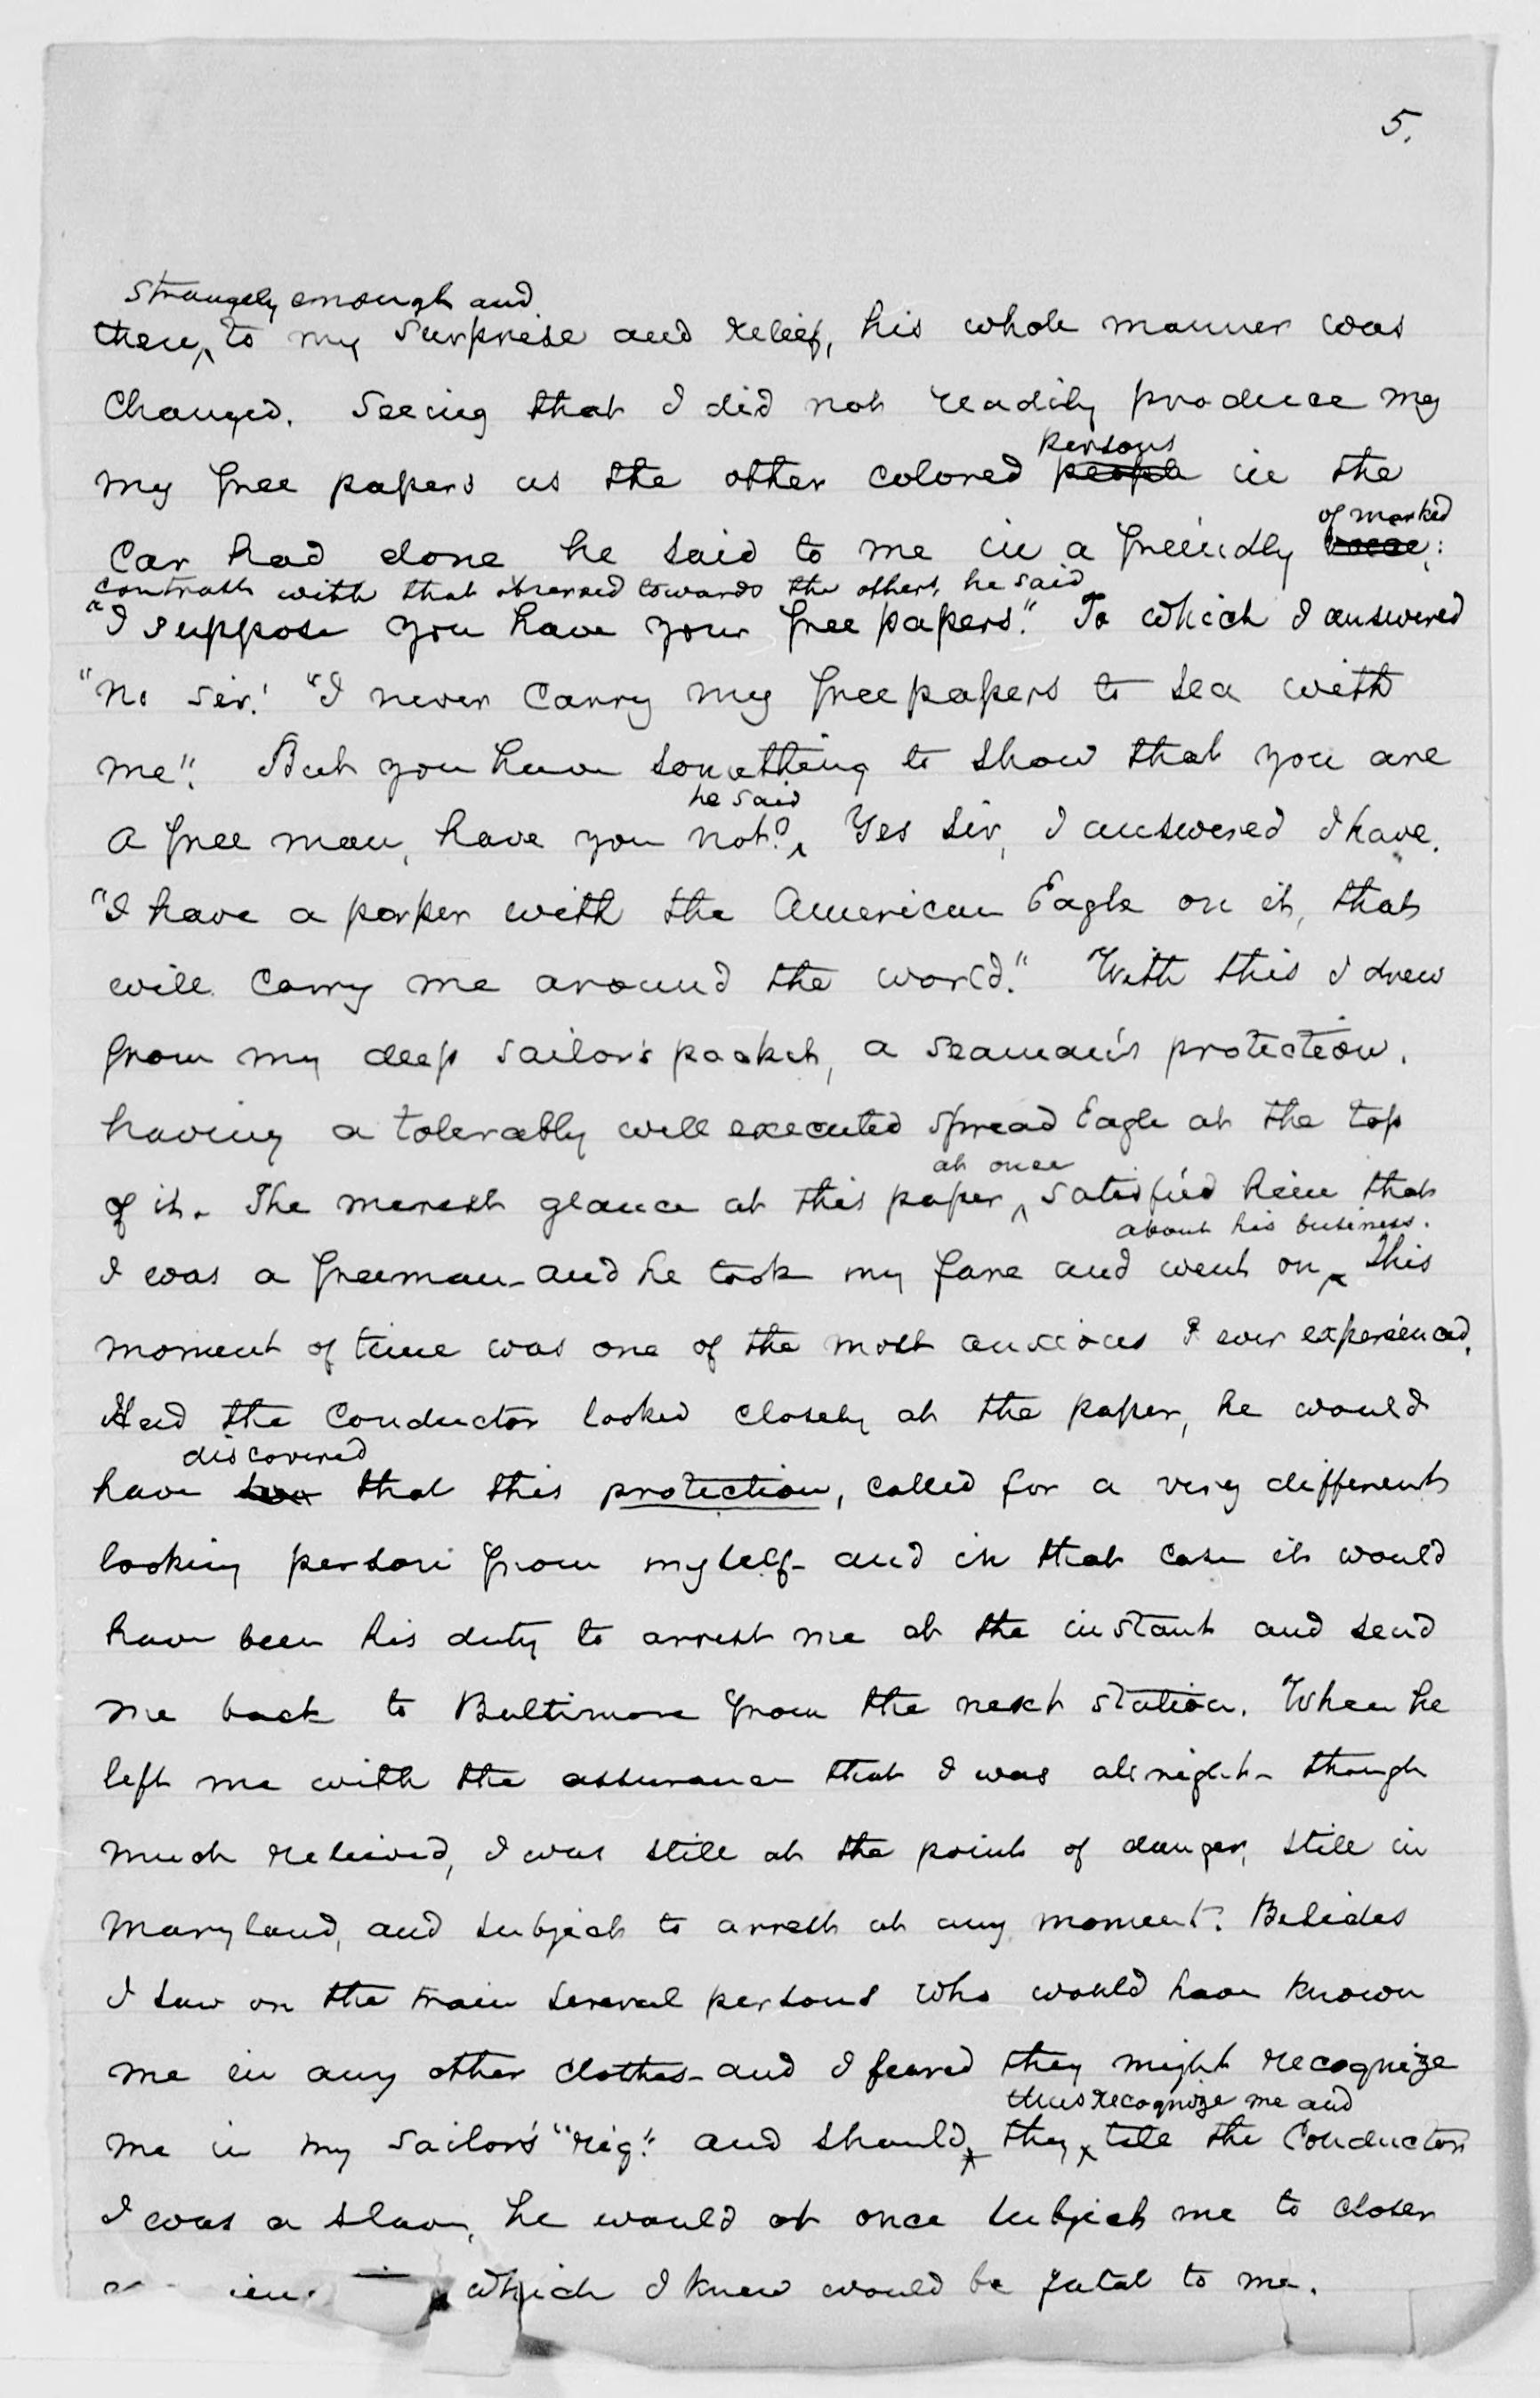 5.
strangely enough and
then, ^ to my surprise and relief, his whole manner was
changed. Seeing that I did not readily produce my
persons
my free papers as the other colored people in the
of marked
Car had done he said to me in a friendly voice:
contrast with that observed towards the others, he said
"I suppose you have your free papers." To which I answered
"No sir." "I never carry my free papers to sea with
me". But you have something to show that you are
he said
a free man, have you not? ^ Yes sir, I answered I have.
"I have a paper with the American Eagle on it, that
will carry me around the world." With this I drew
from my deep sailor's pocket, a seaman's protection.
having a tolerably well executed spread Eagle at the top
at once
of it. The merest glance at this paper ^ satisfied him that
about his business.
I was a freeman - and he took my fare and went on ^ This
moment of time was one of the most anxious I ever experienced.
Had the Conductor looked closely at the paper, he would
discovered
have that this protection, called for a very different
looking person from myself - and in that case it would
have been his duty to arrest me at the instant and send
me back to Baltimore from the next station. When he
left me with the assurance that I was all right - though
much relieved, I was still at the point of danger, still in
Maryland, and subject to arrest at any moment. Besides
I saw on the train several persons who would have known
me in any other clothes - and I feared they might recognize
thus recognize me and
me in my sailor's "rig." and should ^ they ^ tell the Conductor
I was a slave, he would at once subject me to closer
which I knew would be fatal to me.